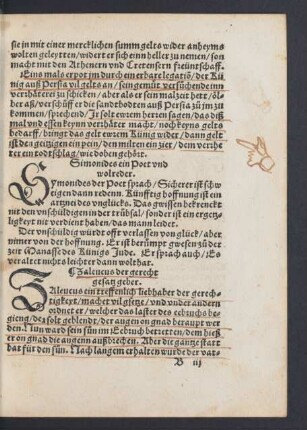 sie in mit einer mercklichen summ gelts wider anheyms
wolten geleytten / widert er sich inn heller zu nemen / son
macht mit den Athenern vnd Cretensern freüntschaff.
Eins mals erpot im durch ein erbare legatiõ / der Kü
nig auß Persia vil gelts an / sein gemüt versůchende im
verrhäter zů schicken / aber als er sein malzeit het / ol
ber aß / verschüff er die sandtbotten auß Persia zů im zů
kommen / sprechend / Jr solt ewrem herren sagen / das diß
mal vnd essen keyn verrhäter macht / noch keyns gelts
bedarff / bingt das gelt ewrem Künig wider / dann gelt
ist des geitzigen ein pein / den milten ein zier / dem verrhe
ter ein todtschlag / wie doben gehört.
Simonides ein Poet vnd
wolreder.
Symonides der Poet sprach / Sicherer ist schw
igen dann reden. Künfftig hoffnung ist ein
artznei des vnglücks. Das gwissen bekrenckt
nit den vnschuldigen in der trübsal / sonder ist ein ergetz
ligkeyt nit verdient haben / das man leidet.
Der vnschuldig würdt offt verlassen von glück / aber
nimer von der hoffnung. Er ist berümpt gwesen zů der
zeit Manasse des Künigs Jude. Er sprach auch / Es
veraltet nichts leichter dann wolthat.
Zaleucus der gerecht
gesatzgeber.
Zaleucus ein trefflich liebhaber der gerech-
tigkeyt / machet vil gsetze / vnd vnder andern
ordnet er / welcher das laster des eebruchs be-
gieng / der solt geblendt / der augen on gnad beraupt wer
den. Nun ward sein sün im Eebruch betretten / dem hieß
er on gnad die augenn außbrechen. Aber die gantze statt
bat für den sün. Nach langem erhalten wurde der vat-
B iij